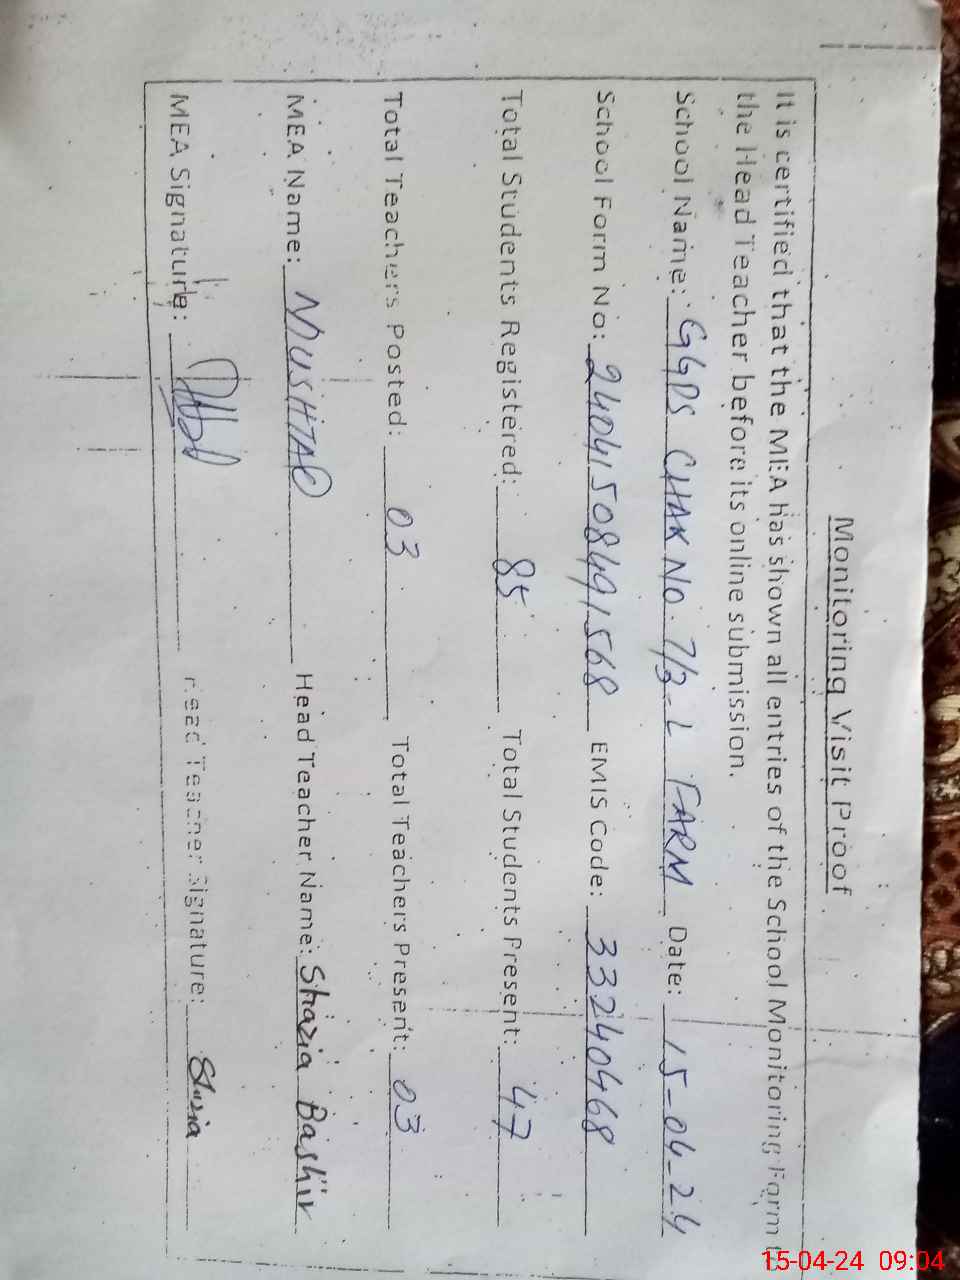 Monitoring Visit Proof
It is certified that the MEA has shown all entries of the School Monitoring Form to
the Head Teacher before its online submission.
School Name: GGPS CHAK NO. 7/3-L FARM Date: 15-04-24
School Form No: 24041508491568 EMIS Code: 33240468
Total Students Registered: 85 Total Students Present: 47
Total Teachers Posted: 03 Total Teachers Present: 03
MEA Name: MUSHTAQ Head Teacher Name: Shazia Bashir
MEA Signature: Head Teacher Signature: Shazia
15-04-24 09:04